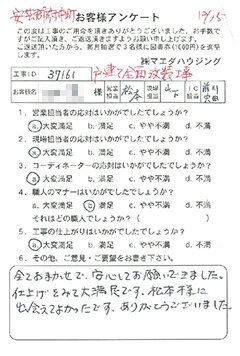 安芸郡府中町 お客様アンケート 12/15
この度は工事のご用命を頂きありがとうございました。お手数
ですがご記入頂き、ご返送頂きますようお願い申し上げます。
ご返送頂いた方から、毎月抽選で3名様に図書券(1000円)を進呈
します。
㈱マエダハウジング
工事ID 37161 戸建て全面改装工事
お客様名 様 営業担当 松本 現場担当 山下 IC担当
1. 営業担当者の応対はいかがでしたでしょうか?
a. 大変満足 b. 満足 c. やや不満 d. 不満
2. 現場担当者の応対はいかがでしたでしょうか?
a. 大変満足 b. 満足 c. やや不満 d. 不満
3. コーディネーターの応対はいかがでしたでしょうか?
a. 大変満足 b. 満足 c. やや不満 d. 不満
4. 職人のマナーはいかがでしたでしょうか?
a. 大変満足 b. 満足 c. やや不満 d. 不満
それはどの職人でしょうか?( )
5. 工事の仕上がりはいかがでしたでしょうか?
a. 大変満足 b. 満足 c. やや不満 d. 不満
6. その他、ご意見・ご要望をお書き下さい。
全ておまかせで、安心してお願いできました。
仕上げをみて大満足です。松本様に
出会えてよかったです。ありがとうございました。